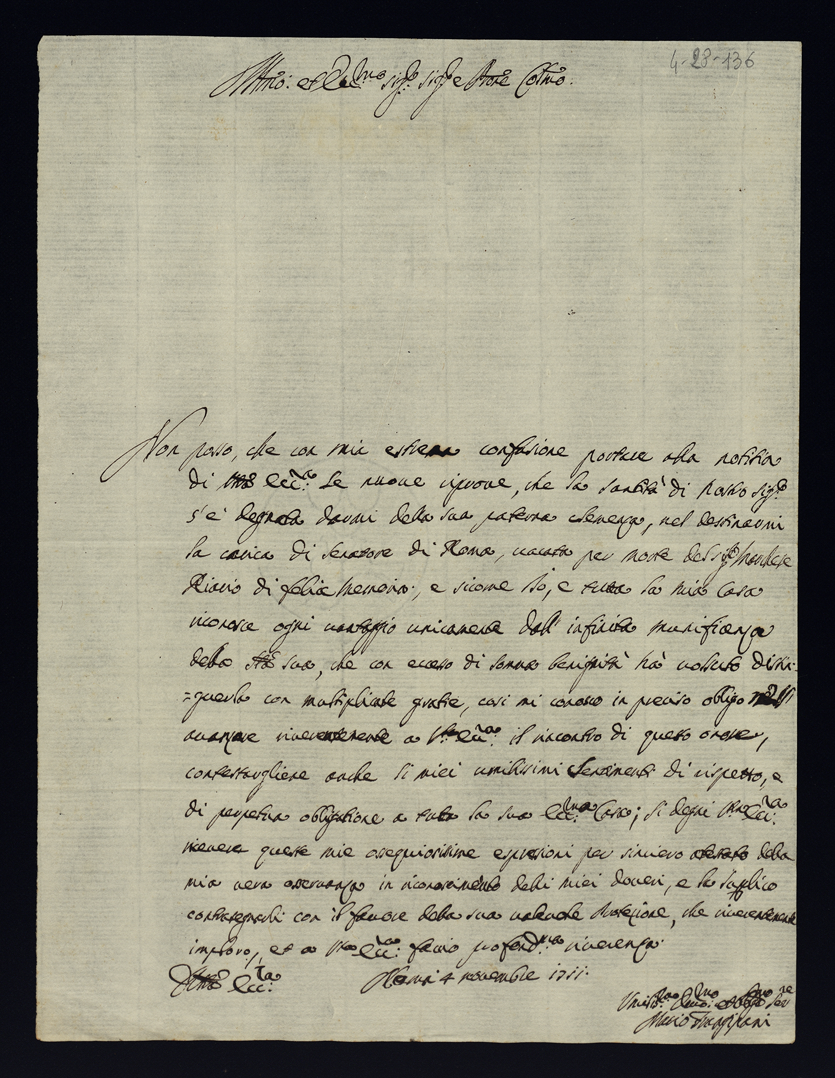 4-23-136
Ill.mo: et Ecc.mo Sig.r Sig.r e Prone Col.mo
Non posso, che con mia estrema confusione portare alla notitia
di Vra Ecc.za le nuove riprove, che la Santità di Nostro Sig.re
s'è degnata darmi della sua paterna clemenza, nel destinarmi
la carica di Senatore di Roma, vacata per morte del Sig.r Marchese
Riario di felice memoria, e sicome Io, e tutta la mia Casa
riconosce ogni vantaggio unicamente dall'infinita munificenza
della Stà sua, che con ecceso di somma benignità hà voluto distin=
=guerla con multiplicate gratie, così mi conosco in preciso obligo
avanzare riverentemente a V.ra Ecc.za il rincontro di questo onore,
contestargliene anche li miei umilissimi sentimenti di rispetto, e
di perpetua obligatione a tutta la sua Ecc.ma Casa; si degni V.ra Ecc.za
ricevere queste mie ossequiosissime espressioni per sincero attestato della
mia vera osservanza in riconoscimento delli miei doveri, e la supplico
contrasegnarli con il favore della sua valevole Protezione, che riverentemente
imploro, et a V.ra Ecc.za faccio profond.ma riverenza.
Di V.ra Ecc.za Roma 4 novembre 1711.
Umil.mo Dev.mo et Oblig.mo Ser.re
Mario Frangipani